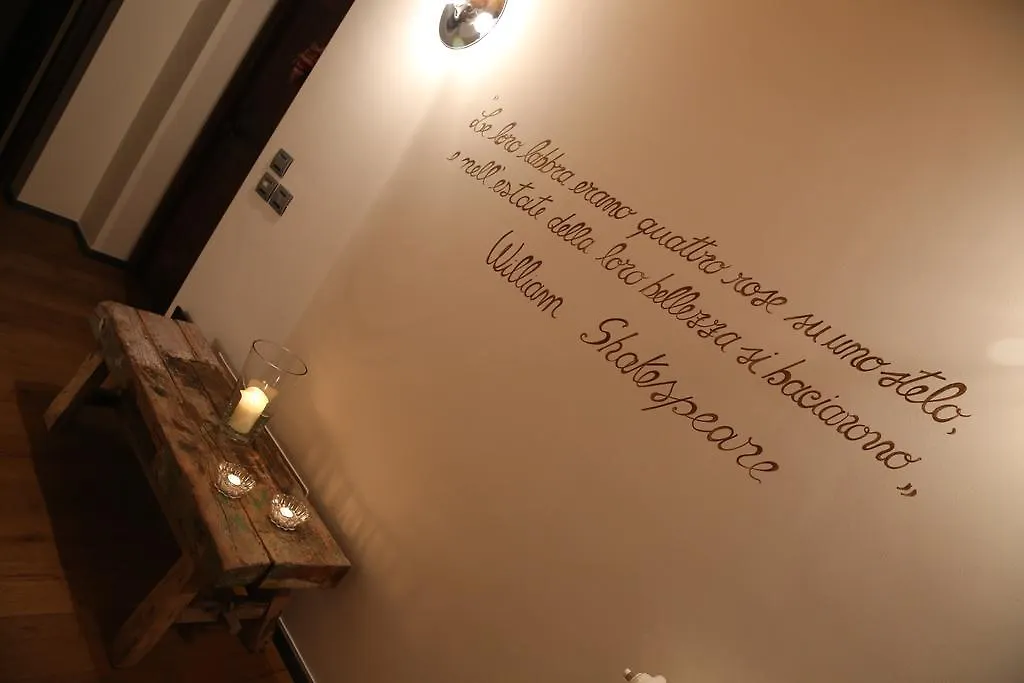 "Le loro labbra erano quattro rose su uno stelo,
e nell'estate della loro bellezza si baciarono"
William Shakespeare